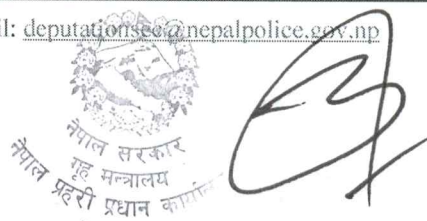 ll: deputationsec@nepalpolice.gov.np
नेपाल सरकार
गृह मन्त्रालय
नेपाल प्रहरी प्रधान